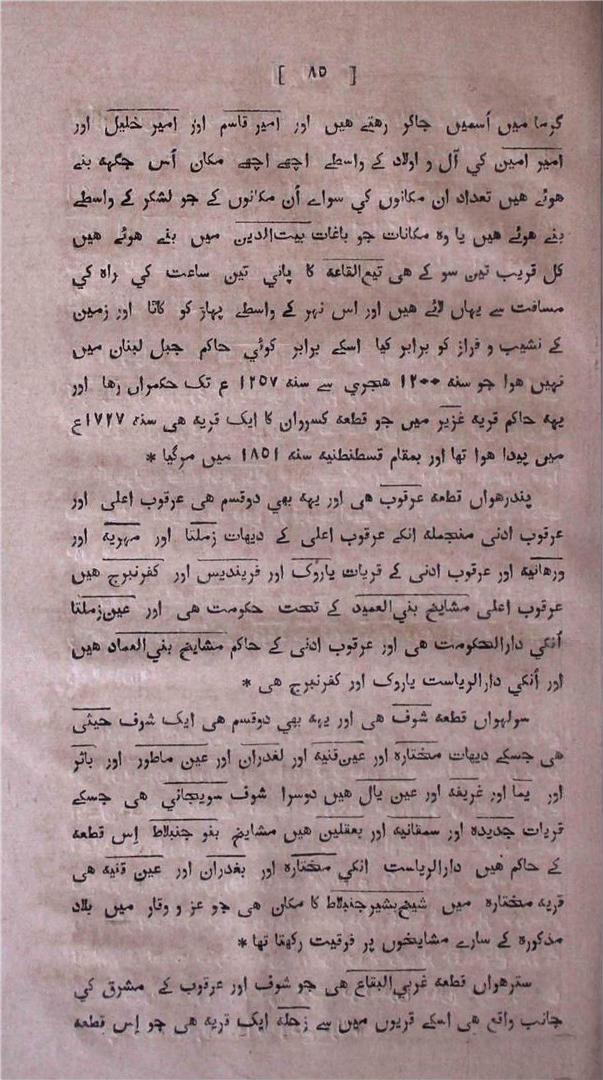 [ ۸۵ ]
گرما میں اُسمیں جاکر رهتے هیں اور امیر قاسم اور امیر خلیل اور
امیر امین کي آل و اولاد کے واسطے اچھے اچھے مکان اُس جگهہ بنے
هوئے هیں تعداد ان مکانوں کي سواے اُن مکانوں کے جو لشکر کے واسطے
بنے هوئے هیں یا وہ مکانات جو باغات بیت‌الدین میں بنے هوئے هیں
کل قریب تین سو کے هی تیع‌القاعه کا پاني تین ساعت کي راہ کي
مسافت سے یهاں لائے هیں اور اس نهر کے واسطے پهاڑ کو کاٹا اور زمین
کے نشیب و فراز کو برابر کیا اسکے برابر کوئي حاکم جبل لبنان میں
نهیں هوا جو سنه ۱۲۰۰ هجري سے سنه ۱۲۵۷ ع تک حکمراں رها اور
یہه حاکم قریه غزیر میں جو قطعه کسروان کا ایک قریه هی سنه ۱۷۲۷ع
میں پیدا هوا تها اور بمقام قسطنطنیه سنه ۱۸۵۱ میں مرگیا *
پندرهواں قطعه عرقوب هی اور یہه بهي دوقسم هی عرقوب اعلی اور
عرقوب ادنی منجمله انکے عرقوب اعلی کے دیهات زملتا اور مهریه اور
ورهانیه اور عرقوب ادنی کے قریات یاروک اور فریندیس اور کفرنبرج هیں
عرقوب اعلی مشایخ بني‌العمید کے تحت حکومت هی اور عین‌زملتا
اُنکي دارالحکومت هی اور عرقوب ادنی کے حاکم مشایخ بني‌العماد هیں
اور اُنکي دارالریاست یاروک اور کفرنبرج هی *
سولهواں قطعه شوف هی اور یہه بهي دوقسم هی ایک شوف حیثی
هی جسکے دیهات مختاره اور عین‌قنیه اور لغدران اور عین ماطور اور باثر
اور یما اور غریفه اور عین یال هیں دوسرا شوف سویجاني هی جسکے
قریات جدیده اور سمقانیه اور بعقلین هیں مشایخ بنو جنبلاط اِس قطعه
کے حاکم هیں دارالریاست انکي مختاره اور بغدران اور عین قنیه هی
قریه مختاره میں شیخ‌بشیرجنبلاط کا مکان هی جو عز و وقار میں بلاد
مذکوره کے سارے مشایخوں پر فوقیت رکهتا تها *
سترهواں قطعه غربي‌البقاع هی جو شوف اور عرقوب کے مشرق کي
جانب واقع هی اسکے قریوں میں سے زحله ایک قریه هی جو اِس قطعه